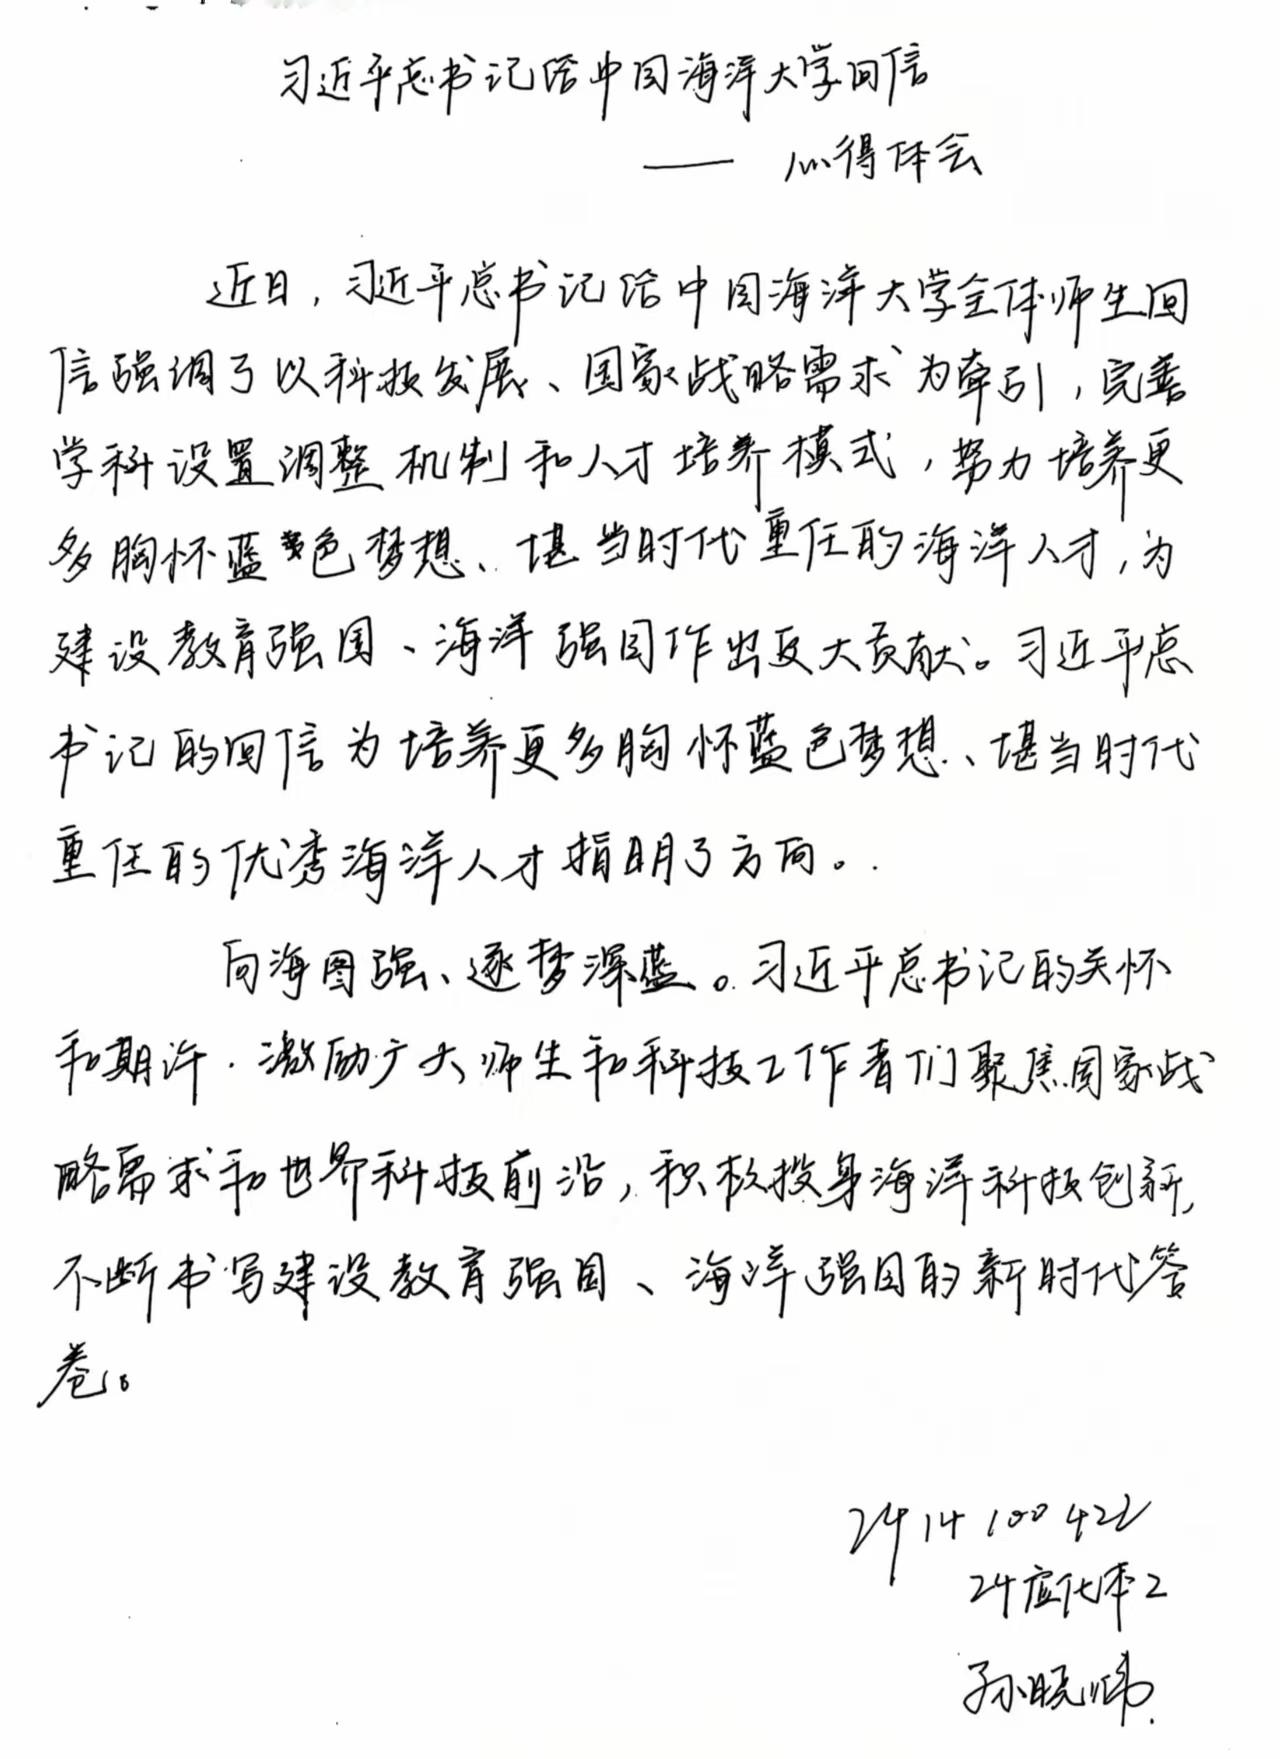 习近平总书记给中国海洋大学回信
—— 心得体会
近日，习近平总书记给中国海洋大学全体师生回
信强调了以科技发展、国家战略需求为牵引，完善
学科设置调整机制和人才培养模式，努力培养更
多胸怀蓝色梦想、堪当时代重任的海洋人才，为
建设教育强国、海洋强国作出更大贡献。习近平总
书记的回信为培养更多胸怀蓝色梦想、堪当时代
重任的优秀海洋人才指明了方向。
向海图强、逐梦深蓝。习近平总书记的关怀
和期许．激励广大师生和科技工作者们聚焦国家战
略需求和世界科技前沿，积极投身海洋科技创新，
不断书写建设教育强国、海洋强国的新时代答
卷。
2414100422
24应化本2
孙晓伟